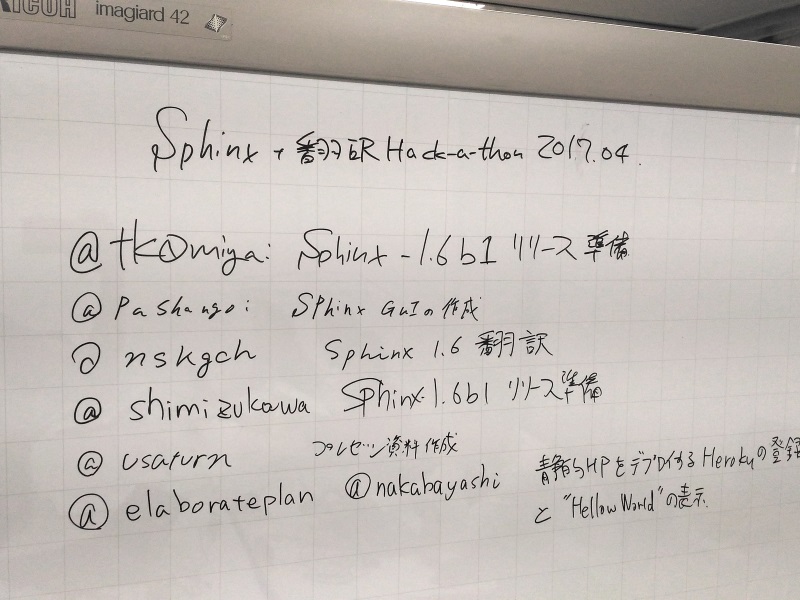 RICOH imagiard 42
Sphinx + 翻訳 Hack-a-thon 2017.04.
@tkomiya: Sphinx-1.6b1 リリース準備
@pashango: Sphinx GUIの作成
@nskgch Sphinx 1.6 翻訳
@shimizukawa Sphinx-1.6b1 リリース準備
@usaturn プレゼン資料作成
@elaborateplan @nakabayashi 静的HPをデプロイするHerokuの登録
と "Hellow World"の表示